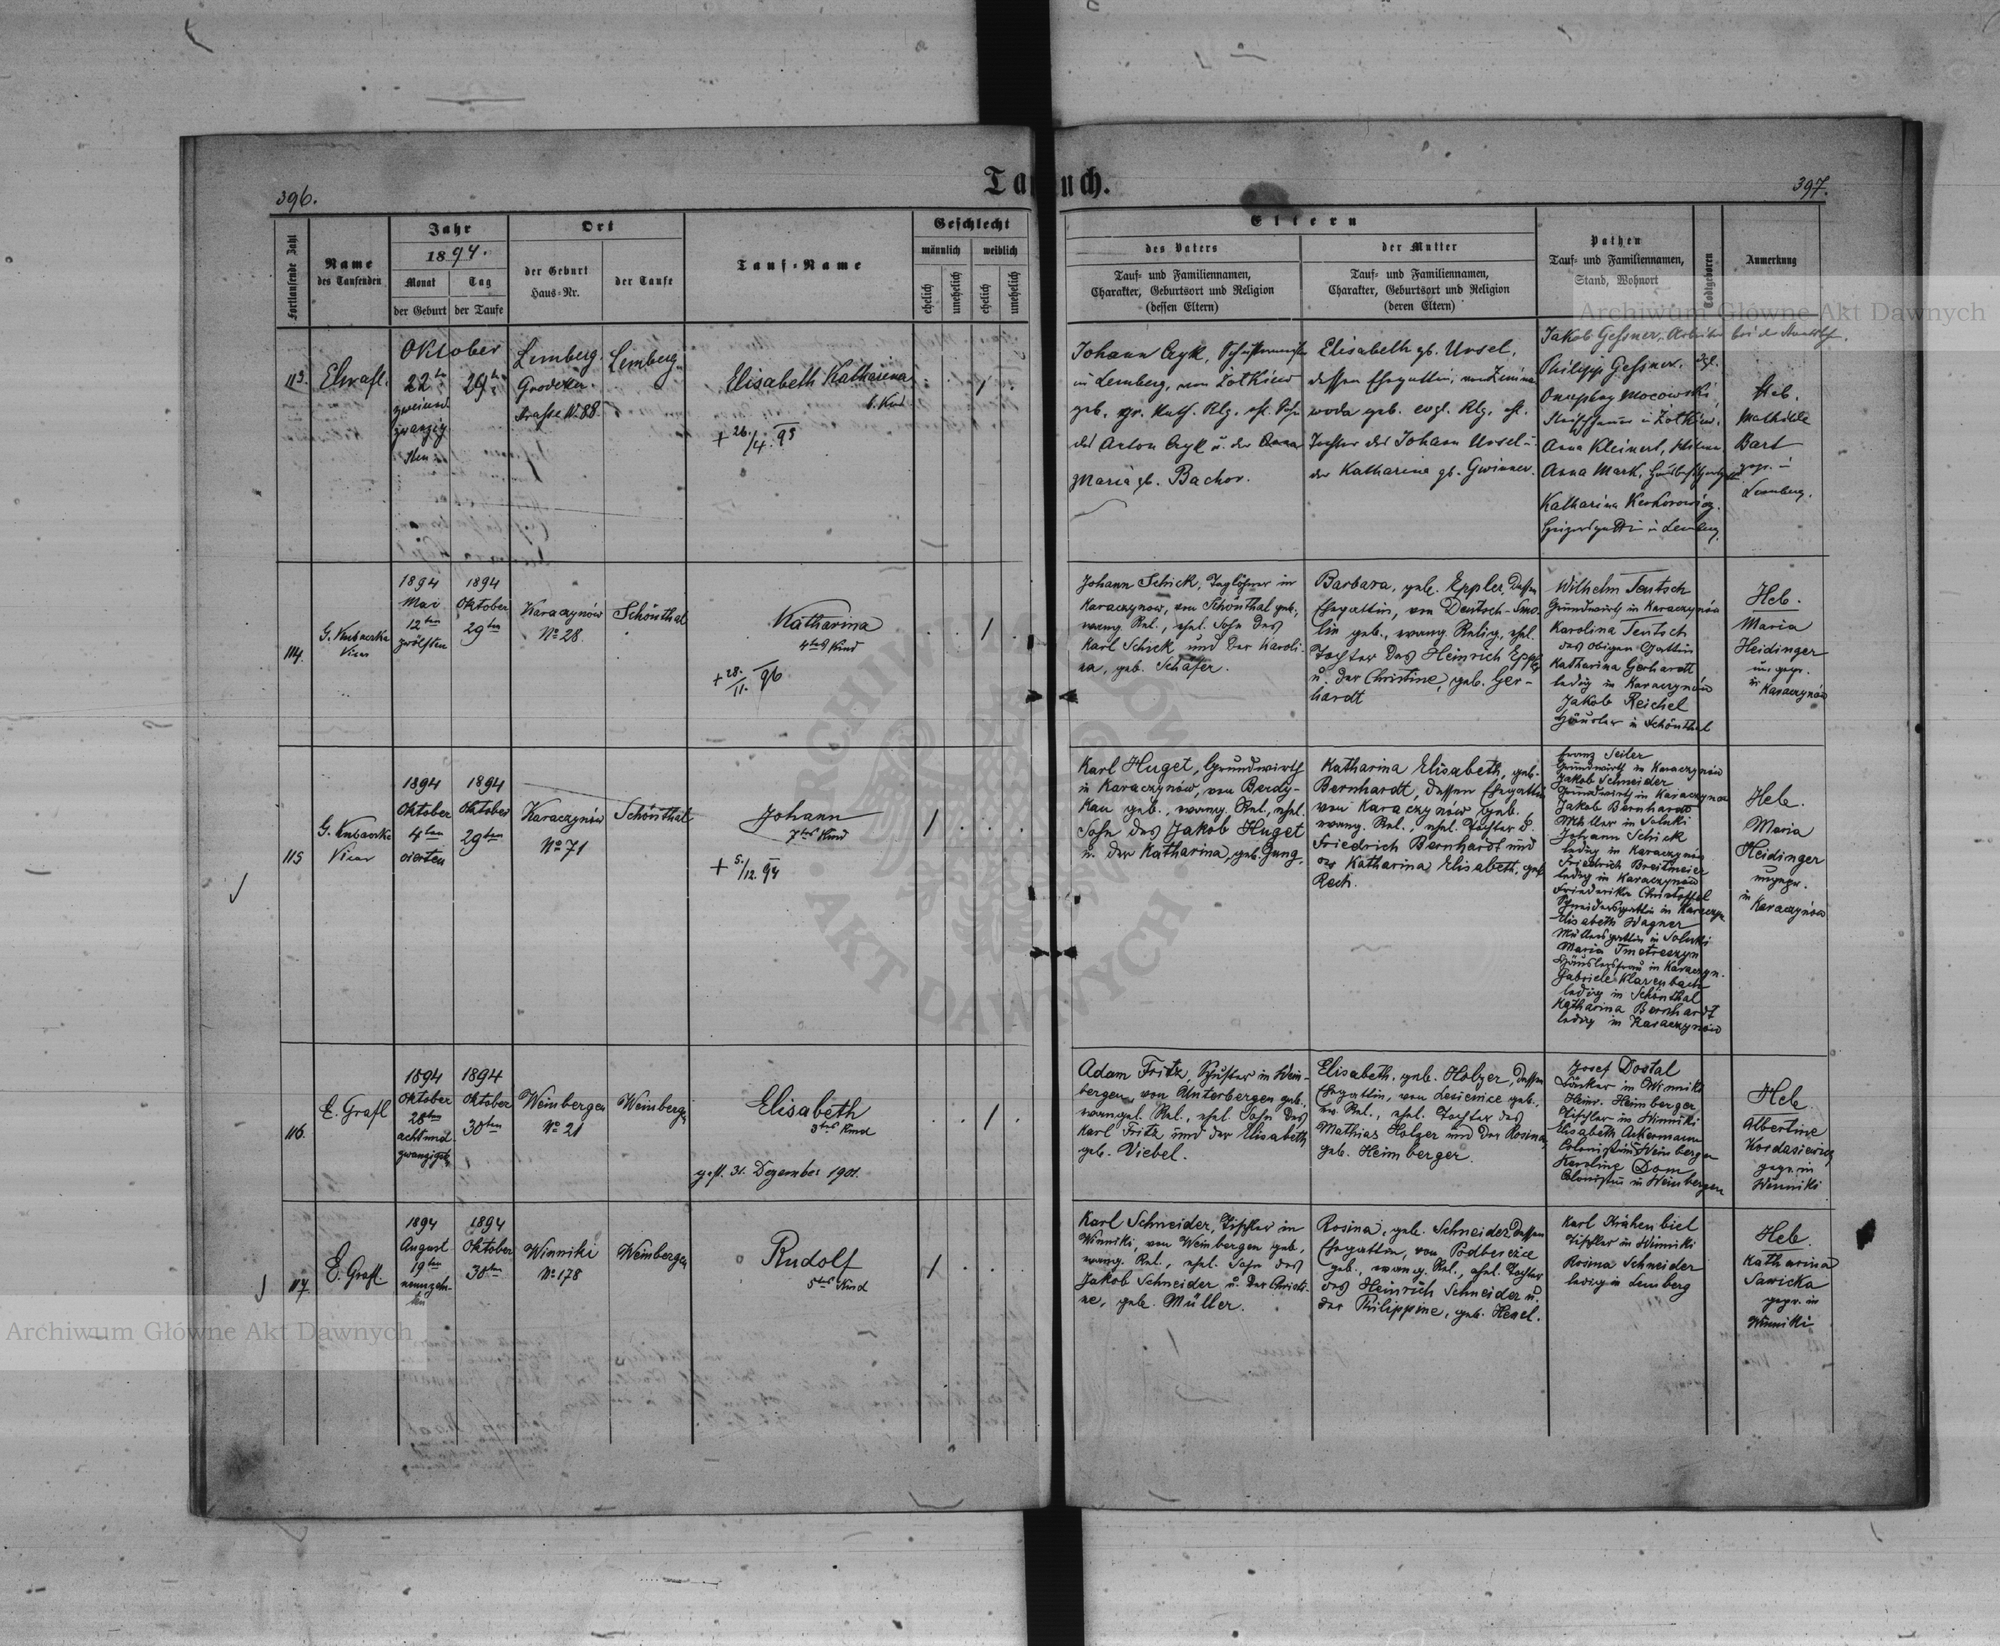 396.
Taufbuch.
397.
Fortlaufende Zahl
Name
des Taufenden
Jahr
1894.
Monat
der Geburt
Tag
der Taufe
Ort
der Geburt
Haus-Nr.
der Taufe
Tauf-Name
Geschlecht
männlich
weiblich
ehelich
unehelich
ehelich
unehelich
Eltern
des Vaters
Tauf- und Familiennamen,
Charakter, Geburtsort und Religion
(dessen Eltern)
der Mutter
Tauf- und Familiennamen,
Charakter, Geburtsort und Religion
(deren Eltern)
Pathen
Tauf- und Familiennamen,
Stand, Wohnort
Todtgeboren
Anmerkung
113.
Oktober
22ten
29ten
Lemberg
Grodeker
Strasse No 88
Lemberg
Elisabeth Katharina
+ 26./4. 95
Johann
in Lemberg, von Zolkiew
geb. gr. kath. Rlg.
Maria gb. Bachor.
Elisabeth gb. Ursel,
dessen Ehegattin
woda geb. evgl. Rlg. ehl.
Tochter des Johann Ursel u.
der Katharina gb. Gwinner.
Jakob Gessner, Arbeiter bei der
Philipp Gessner
in Zolkiew.
Anna Kleinert
Anna Mark
Katharina
in Lemberg
Heb.
Mathilde
Bart
gepr. in
Lemberg.
114.
G. Kubaczka
Vicar
1894
Mai
12ten
zwölften
1894
Oktober
29ten
Karaczynów
No 28.
Schönthal
Katharina
4tes Kind
+ 28./11. 96
1
Johann Schick, Taglöhner in
Karaczynow, von Schönthal geb.,
evang. Rel., ehel. Sohn des
Karl Schick und der Karoli-
na, geb. Schäfer.
Barbara, geb. Eppler, dessen
Ehegattin, von Deutsch-Smo-
lin geb., evang. Relig., ehel.
Tochter des Heinrich Eppler
u. der Christine, geb. Ger-
hardt
Wilhelm Teutsch
Grundwirth in Karaczynów
Karolina Teutsch
des obigen Gattin
Katharina Gerhardt
ledig in Karaczynów
Jakob Reichel
Häusler in Schönthal
Heb.
Maria
Heidinger
ungepr.
in Karaczynów
115
G. Kubaczka
Vicar
1894
Oktober
4ten
vierten
1894
Oktober
29ten
Karaczynów
No 71
Schönthal
Johann
7tes Kind
+ 5./12. 94
1
Karl Huget, Grundwirth
in Karaczynów, von Berdy-
kau geb., evang. Rel., ehel.
Sohn des Jakob Huget
u. der Katharina, geb. Jung.
Katharina Elisabeth, geb.
Bernhardt, dessen Ehegattin
von Karaczynów geb.
evang. Rel., ehel. Tochter d.
Friedrich Bernhardt und
der Katharina Elisabeth, geb.
Rech.
Franz Seiler
Grundwirth in Karaczynów
Jakob Schneider
Grundwirth in Karaczynów
Jakob Bernhardt
Müller in Saluki
Johann Schick
ledig in Karaczynów
Friedrich Breitmeier
ledig in Karaczynów
Friederike Christoffel
Schneidersgattin in Karaczyn.
Elisabeth Wagner
Müllersgattin in Saluki
Maria
Häuslersfrau in Karaczyn.
Gabriele Klarenbach
ledig in Schönthal
Katharina Bernhardt
ledig in Karaczynów
Heb.
Maria
Heidinger
ungepr.
in Karaczynów
116.
E. Grafl
1894
Oktober
28ten
achtund
zwanzigsten
1894
Oktober
30ten
Weinbergen
No 21
Weinbergen
Elisabeth
3tes Kind
gest. 31. Dezember 1901.
1
Adam Fritz, Schuster in Wein-
bergen, von Unterbergen geb.
evangel. Rel., ehel. Sohn des
Karl Fritz und der Elisabeth
geb. Viebel.
Elisabeth, geb. Holzer, dessen
Ehegattin, von Lesienice geb.
ev. Rel., ehel. Tochter des
Mathias Holzer und der Rosina,
geb. Heimberger
Josef Dostal
Bäcker in Winniki
Heinr. Heimberger
Tischler in Winniki
Elisabeth Ackermann
Colonistin in Weinbergen
Karoline Dom
Colonistin in Weinbergen
Heb
Albertine
Kordasiewicz
gepr. in
Winniki
117.
E. Grafl
1894
August
19ten
neunzehn-
ten
1894
Oktober
30ten
Winniki
No 178
Weinbergen
Rudolf
5tes Kind
1
Karl Schneider, Tischler in
Winniki, von Weinbergen geb.,
evang. Rel., ehel. Sohn des
Jakob Schneider u. der Christi-
ne, geb. Müller.
Rosina, geb. Schneider, dessen
Ehegattin, von Podberezce
geb., evang. Rel., ehel. Tochter
des Heinrich Schneider u.
der Philippine, geb. Hexel.
Karl Krähenbiel
Tischler in Winniki
Rosina Schneider
ledig in Lemberg
Heb.
Katharina
Sawicka
gepr. in
Winniki
Archiwum Główne Akt Dawnych
Archiwum Główne Akt Dawnych
ARCHIWUM GŁÓWNE AKT DAWNYCH